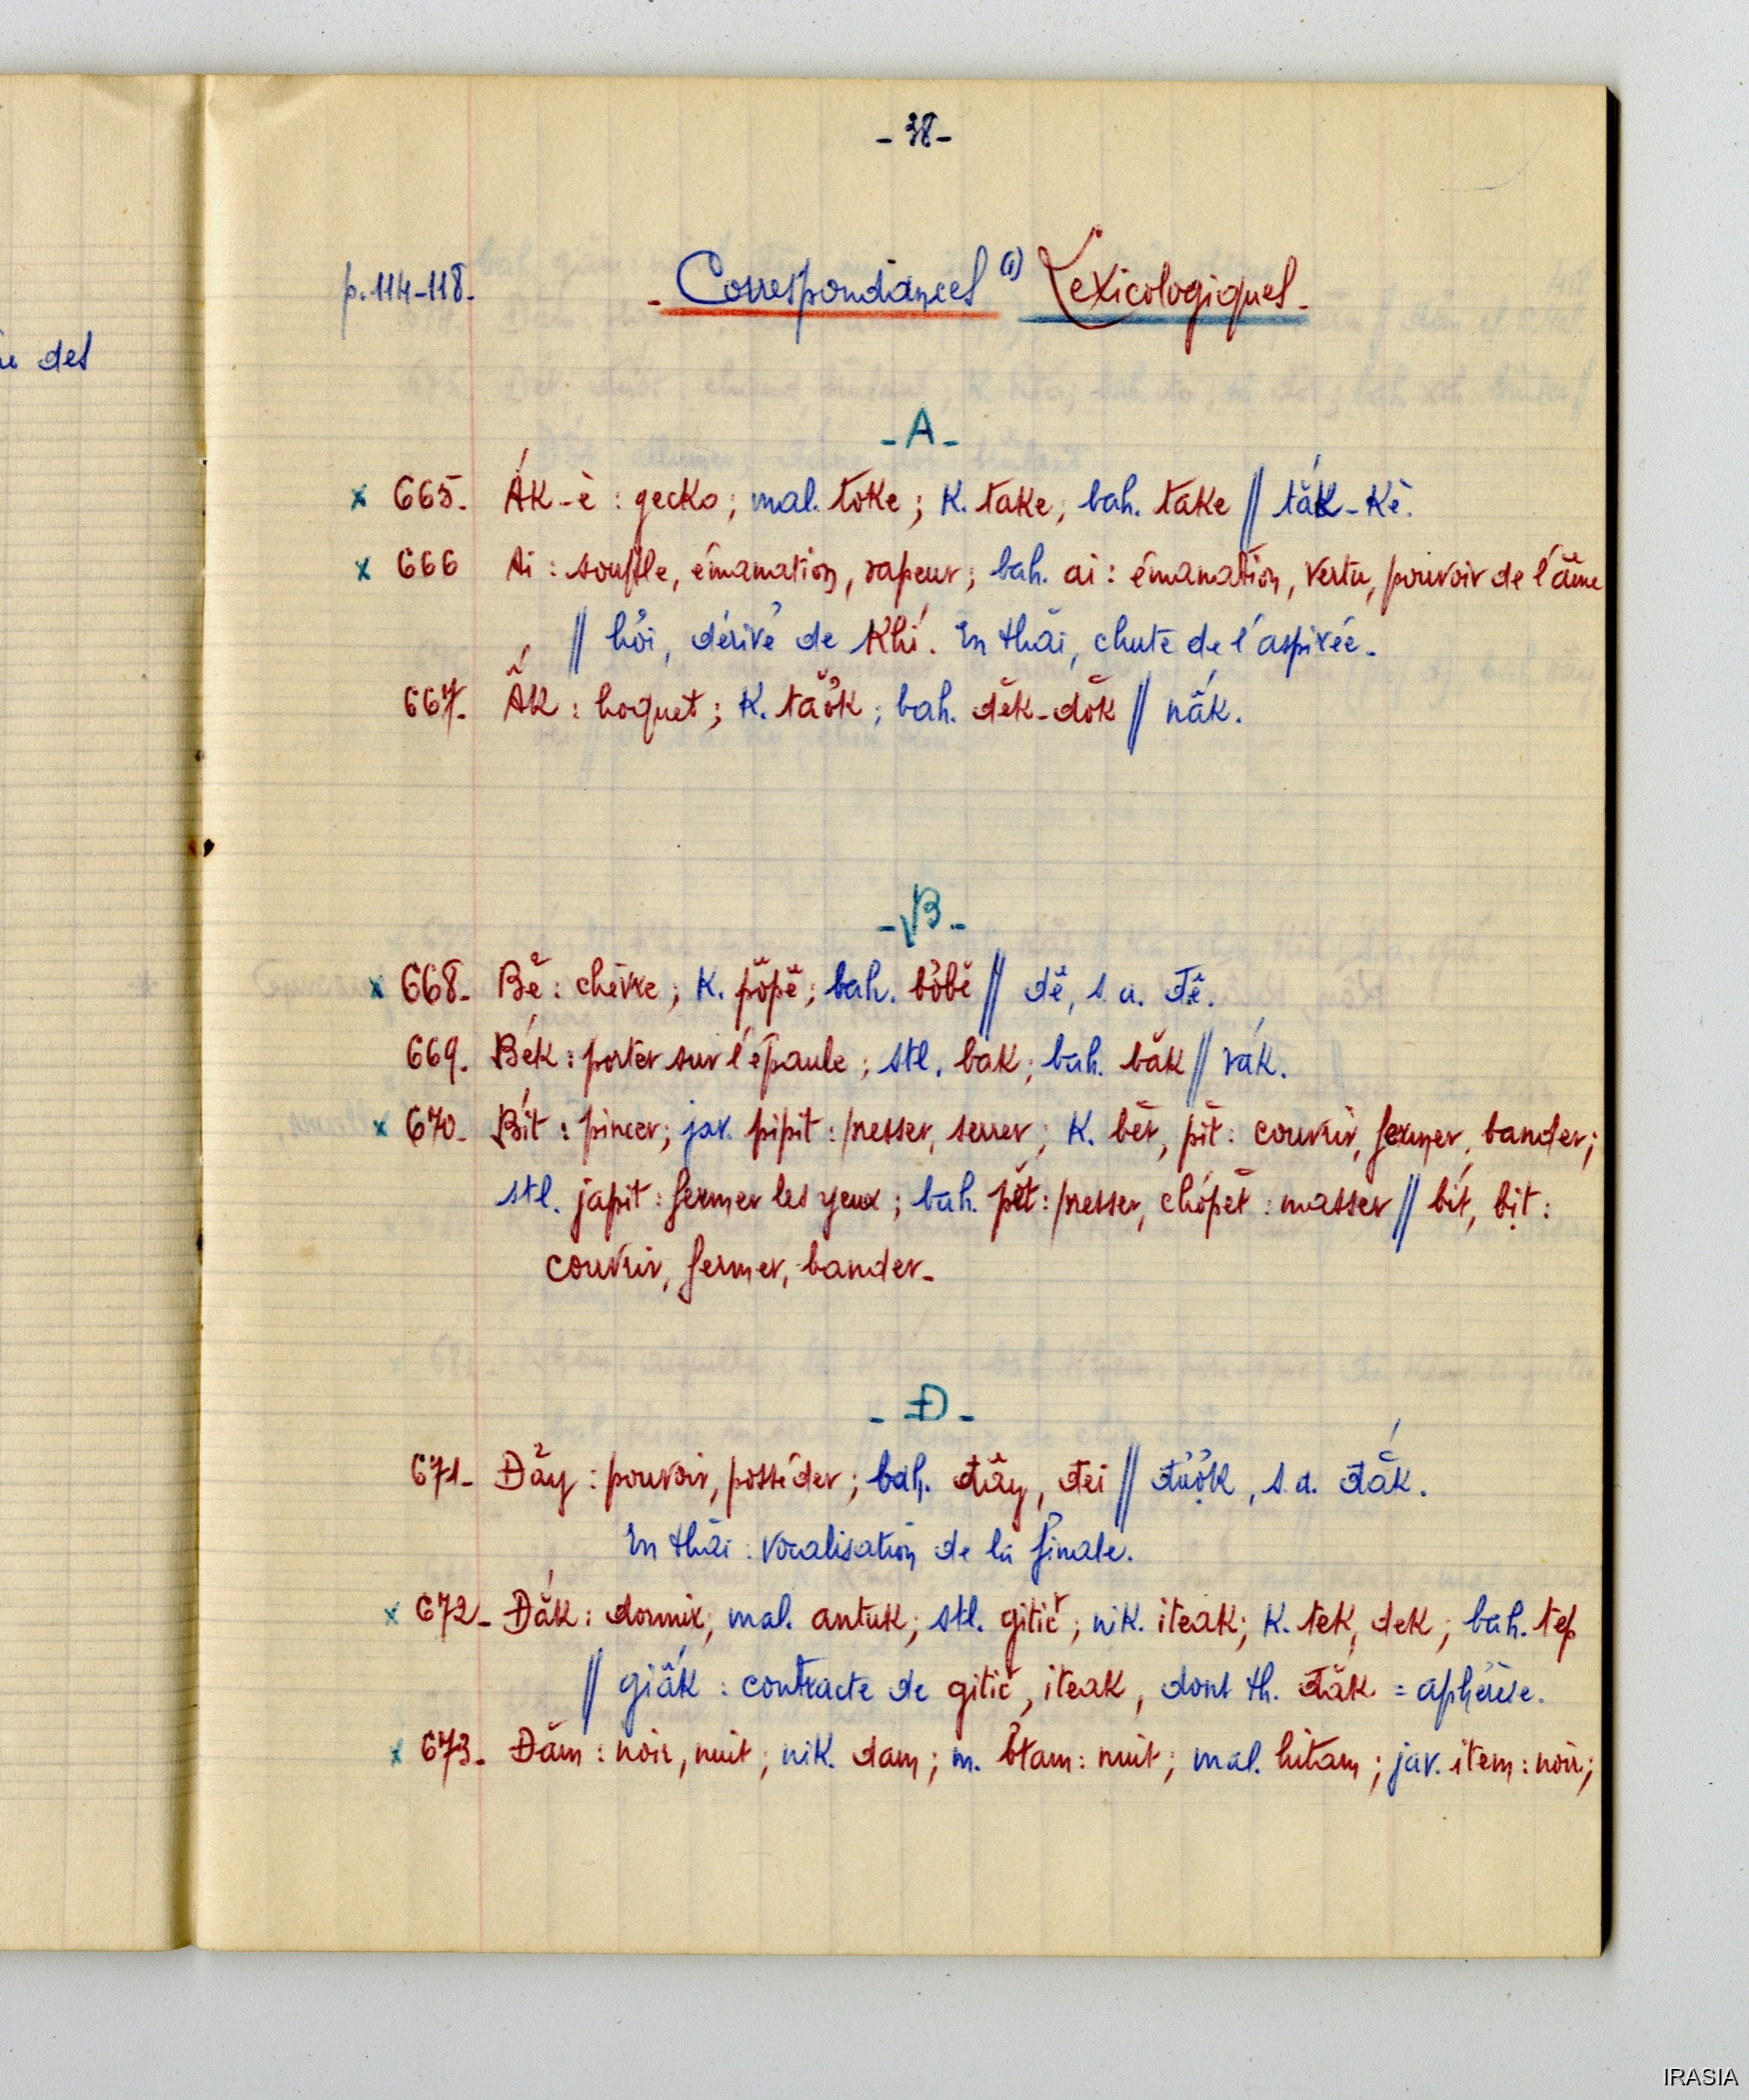 - 38 -
p. 114-118.
- Correspondances (1) Lexicologiques -
des
- A -
x 665. Ák-è : gecko ; mal. toke ; K. take ; bah. take // tắk-kè.
x 666 Ai : souffle, émanation, vapeur ; bah. ai : émanation, vertu, pouvoir de l'âme
// hởi, dérivé de Khí. En thăi, chute de l'aspirée.
667. Ẫk : hoquet ; K. taơ̆k ; bah. dĕk-dŏk // nấk.
- B -
x 668. Bẻ : chèvre ; K. pŏpĕ ; bah. bơbĕ // dê, s. a. đê.
669. Bék : porter sur l'épaule ; stl. bak ; bah. băk // vák.
x 670. Bít : pincer ; jav. pipit : presser, serrer ; K. bĕt, pĭt : couvrir, fermer, bander ;
stl. japit : fermer les yeux ; bah. pĕt : presser, chơpĕt : masser // bít, bịt :
couvrir, fermer, bander.
- Đ -
671. Đẩy : pouvoir, posséder ; bah. đây, đei // được, s. a. đắk.
En thăi : vocalisation de la finale.
x 672. Đắk : dormir ; mal. antuk ; stl. gitič ; nik. iteak ; K. tek, dek ; bah. tep
// giấk : contracte de gitič, iteak, dont th. đắk = aphérèse.
x 673. Đăm : noir, nuit ; nik. dam ; m. btam : nuit ; mal. hitam ; jav. item : noir ;
IRASIA